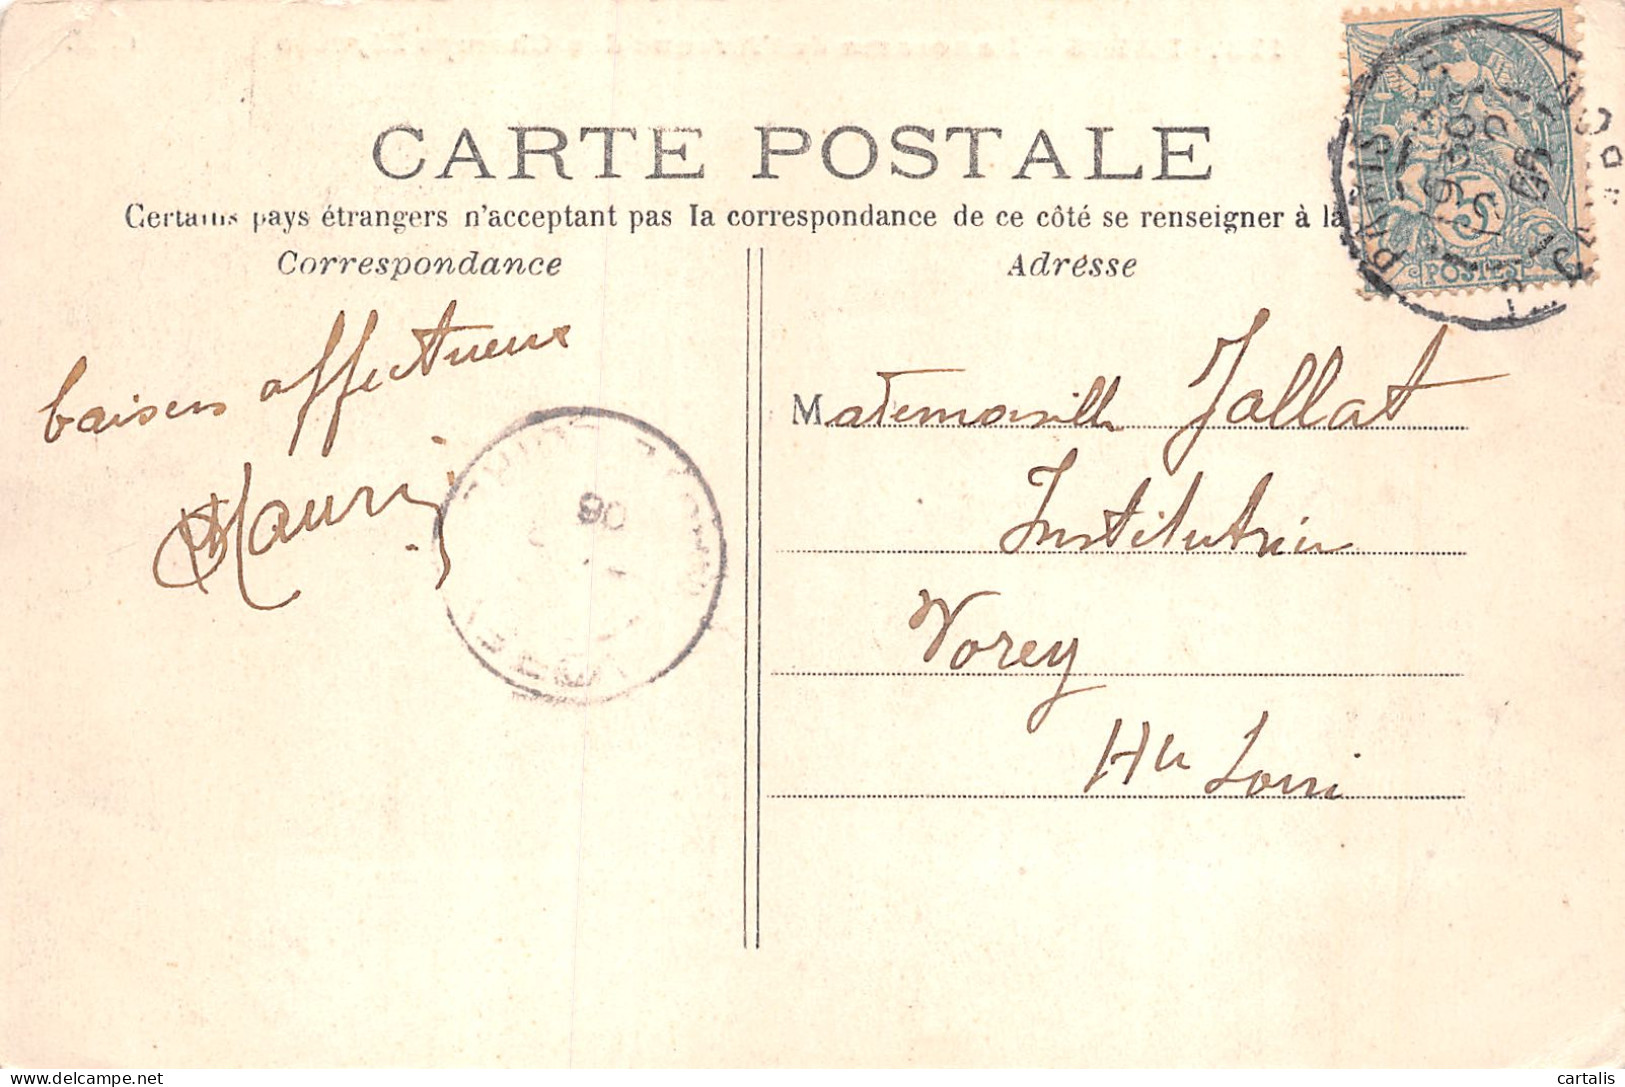 CARTE POSTALE
Certains pays étrangers n'acceptant pas la correspondance de ce côté se renseigner à la
Correspondance
Adresse
baisers affectueux
Mademoiselle Jallat
Institutrice
Vorey
Hte Loire
PARIS
POSTES
06
delcampe.net
cartalis